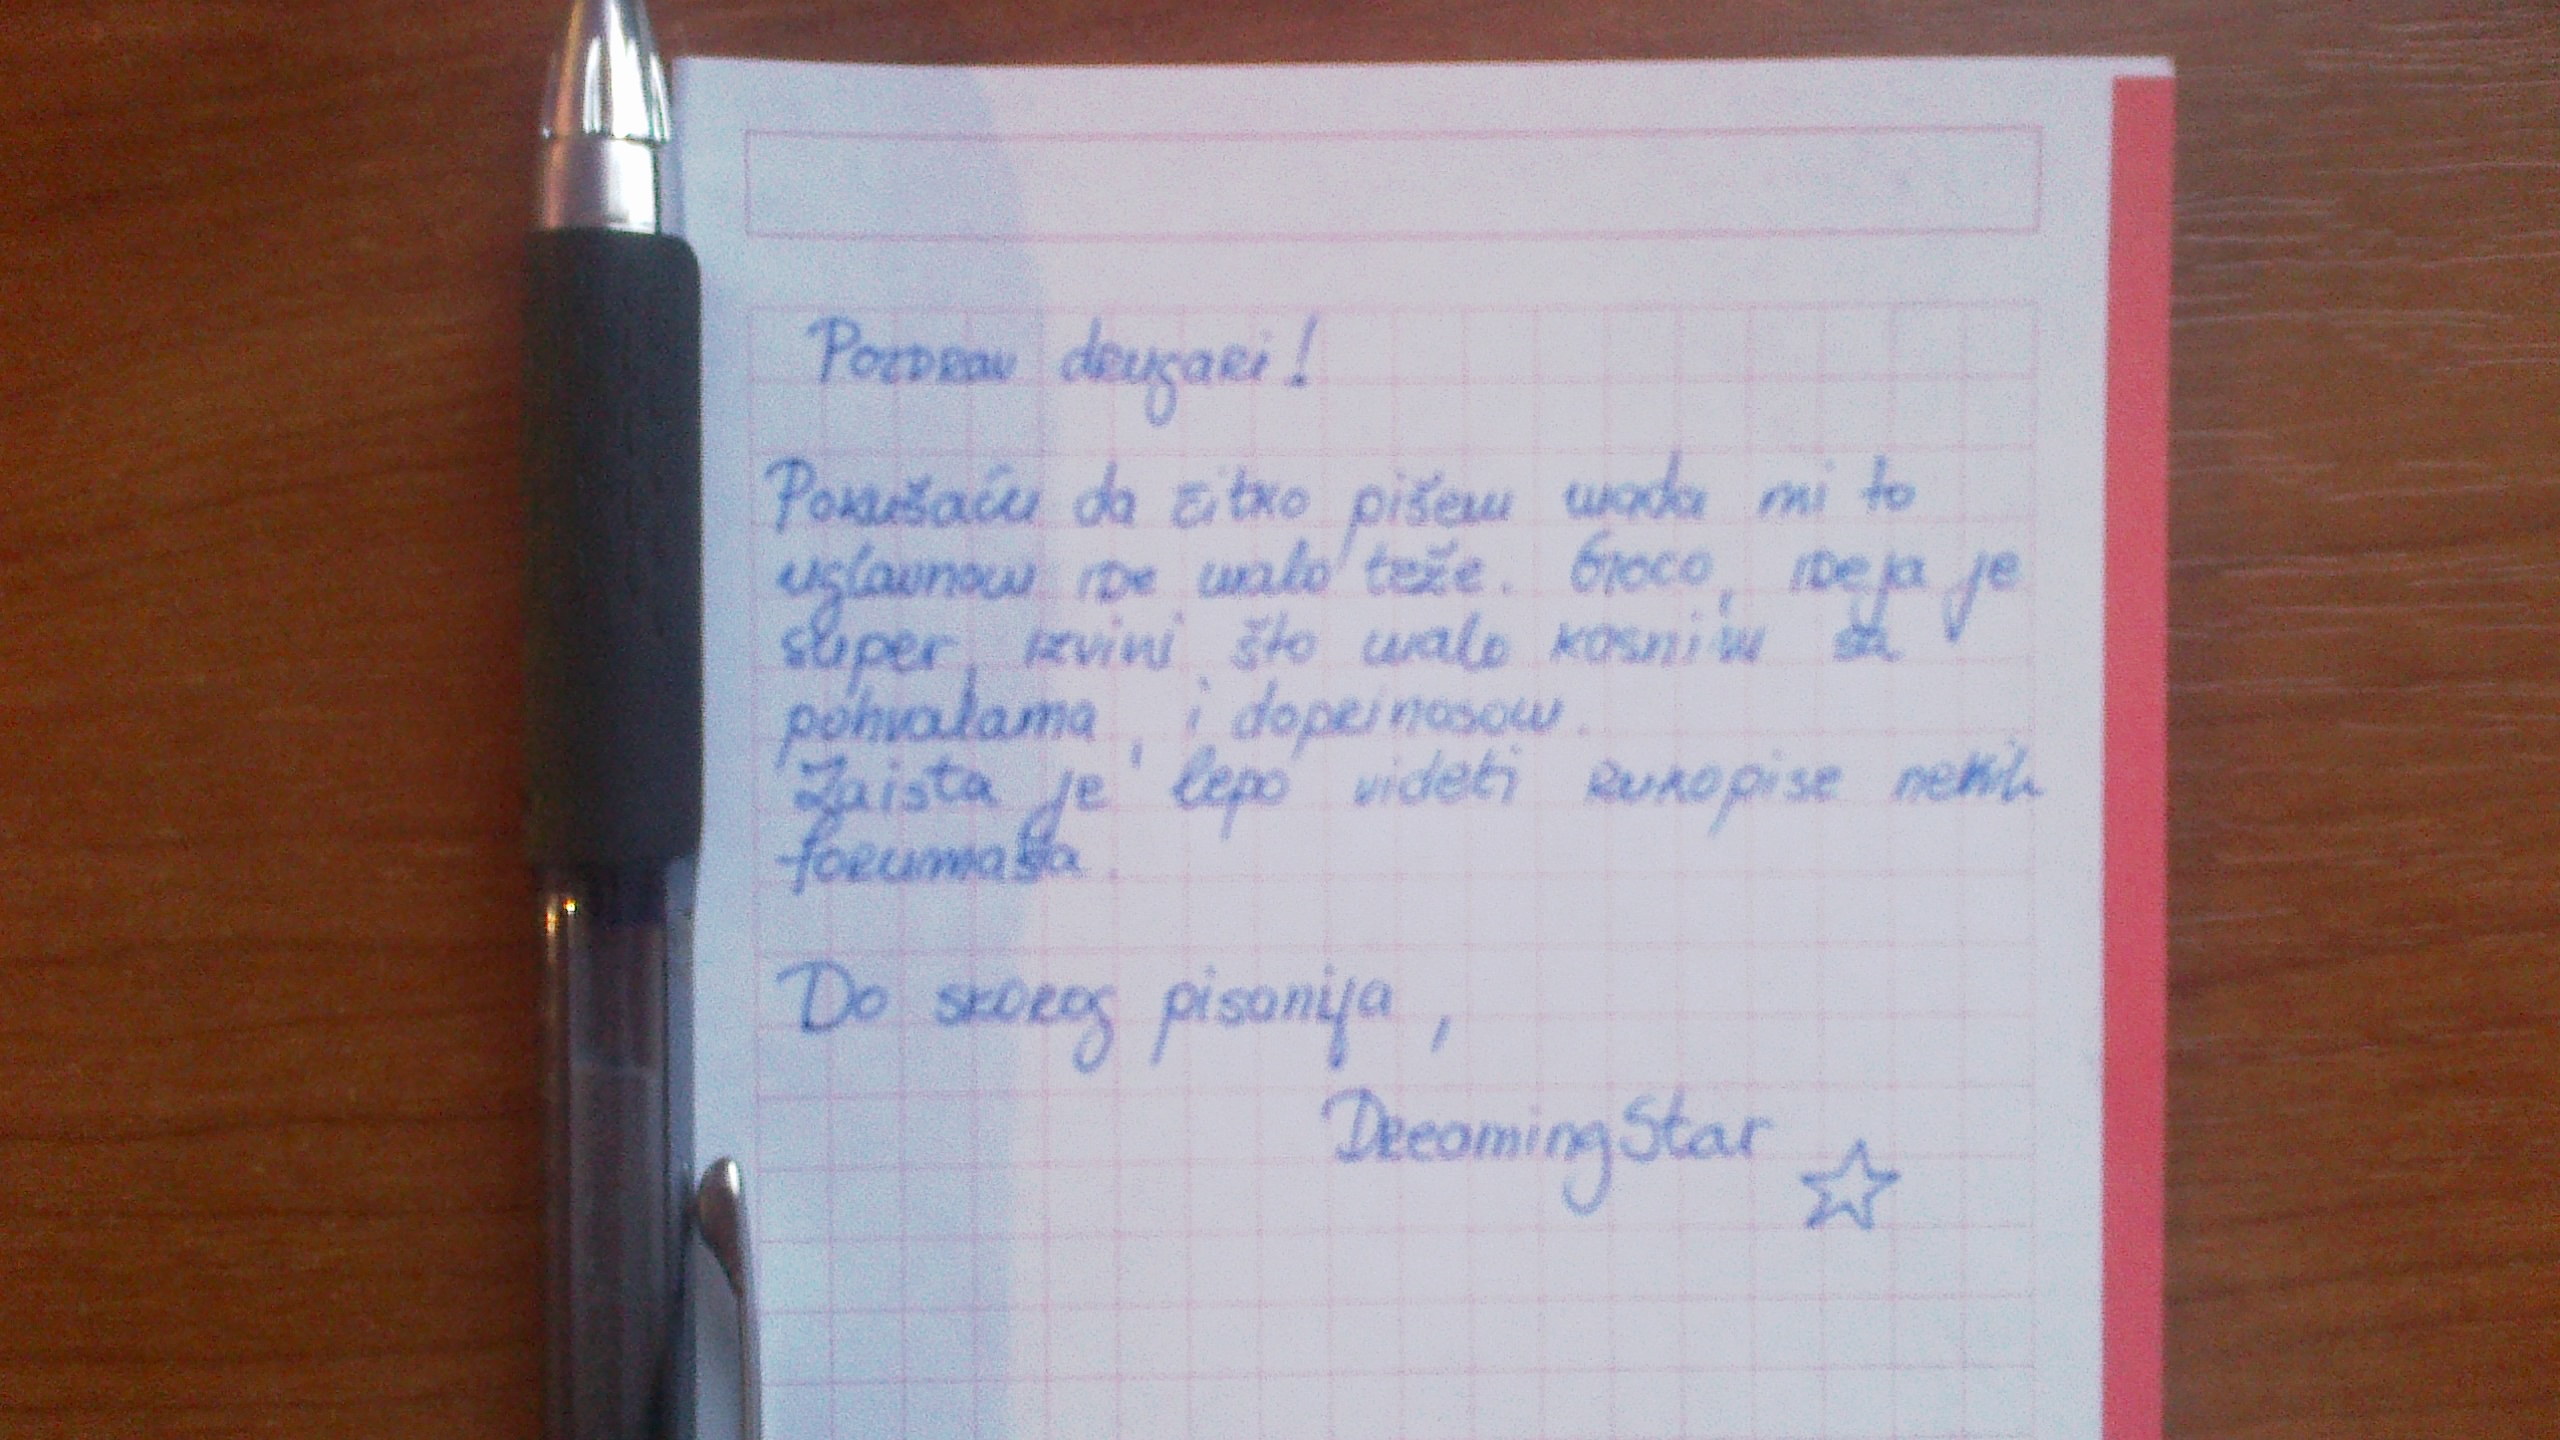 Pozdrav drugari!
Pokušaću da čitko pišem mada mi to
uglavnom ide malo teže. Groco, ideja je
super, izvini što malo kasnim sa
pohvalama, i doprinosom.
Zaista je lepo videti rukopise nekih
forumaša.
Do skorog pisanija,
DreamingStar